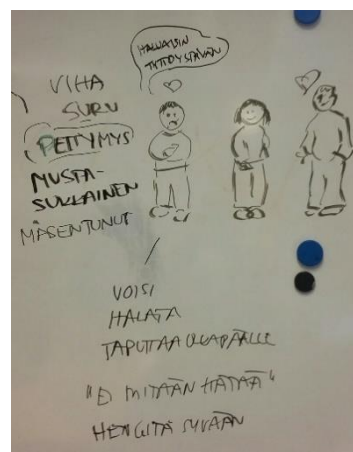 HALUAISIN
TYTTÖYSTÄVÄN
VIHA
SURU
PETTYMYS
MUSTA-
SUKKAINEN
MASENTUNUT
VOISI
HALATA
TAPUTTAA OLKAPÄÄLLE
"EI MITÄÄN HÄTÄÄ"
HENGITÄ SYVÄÄN